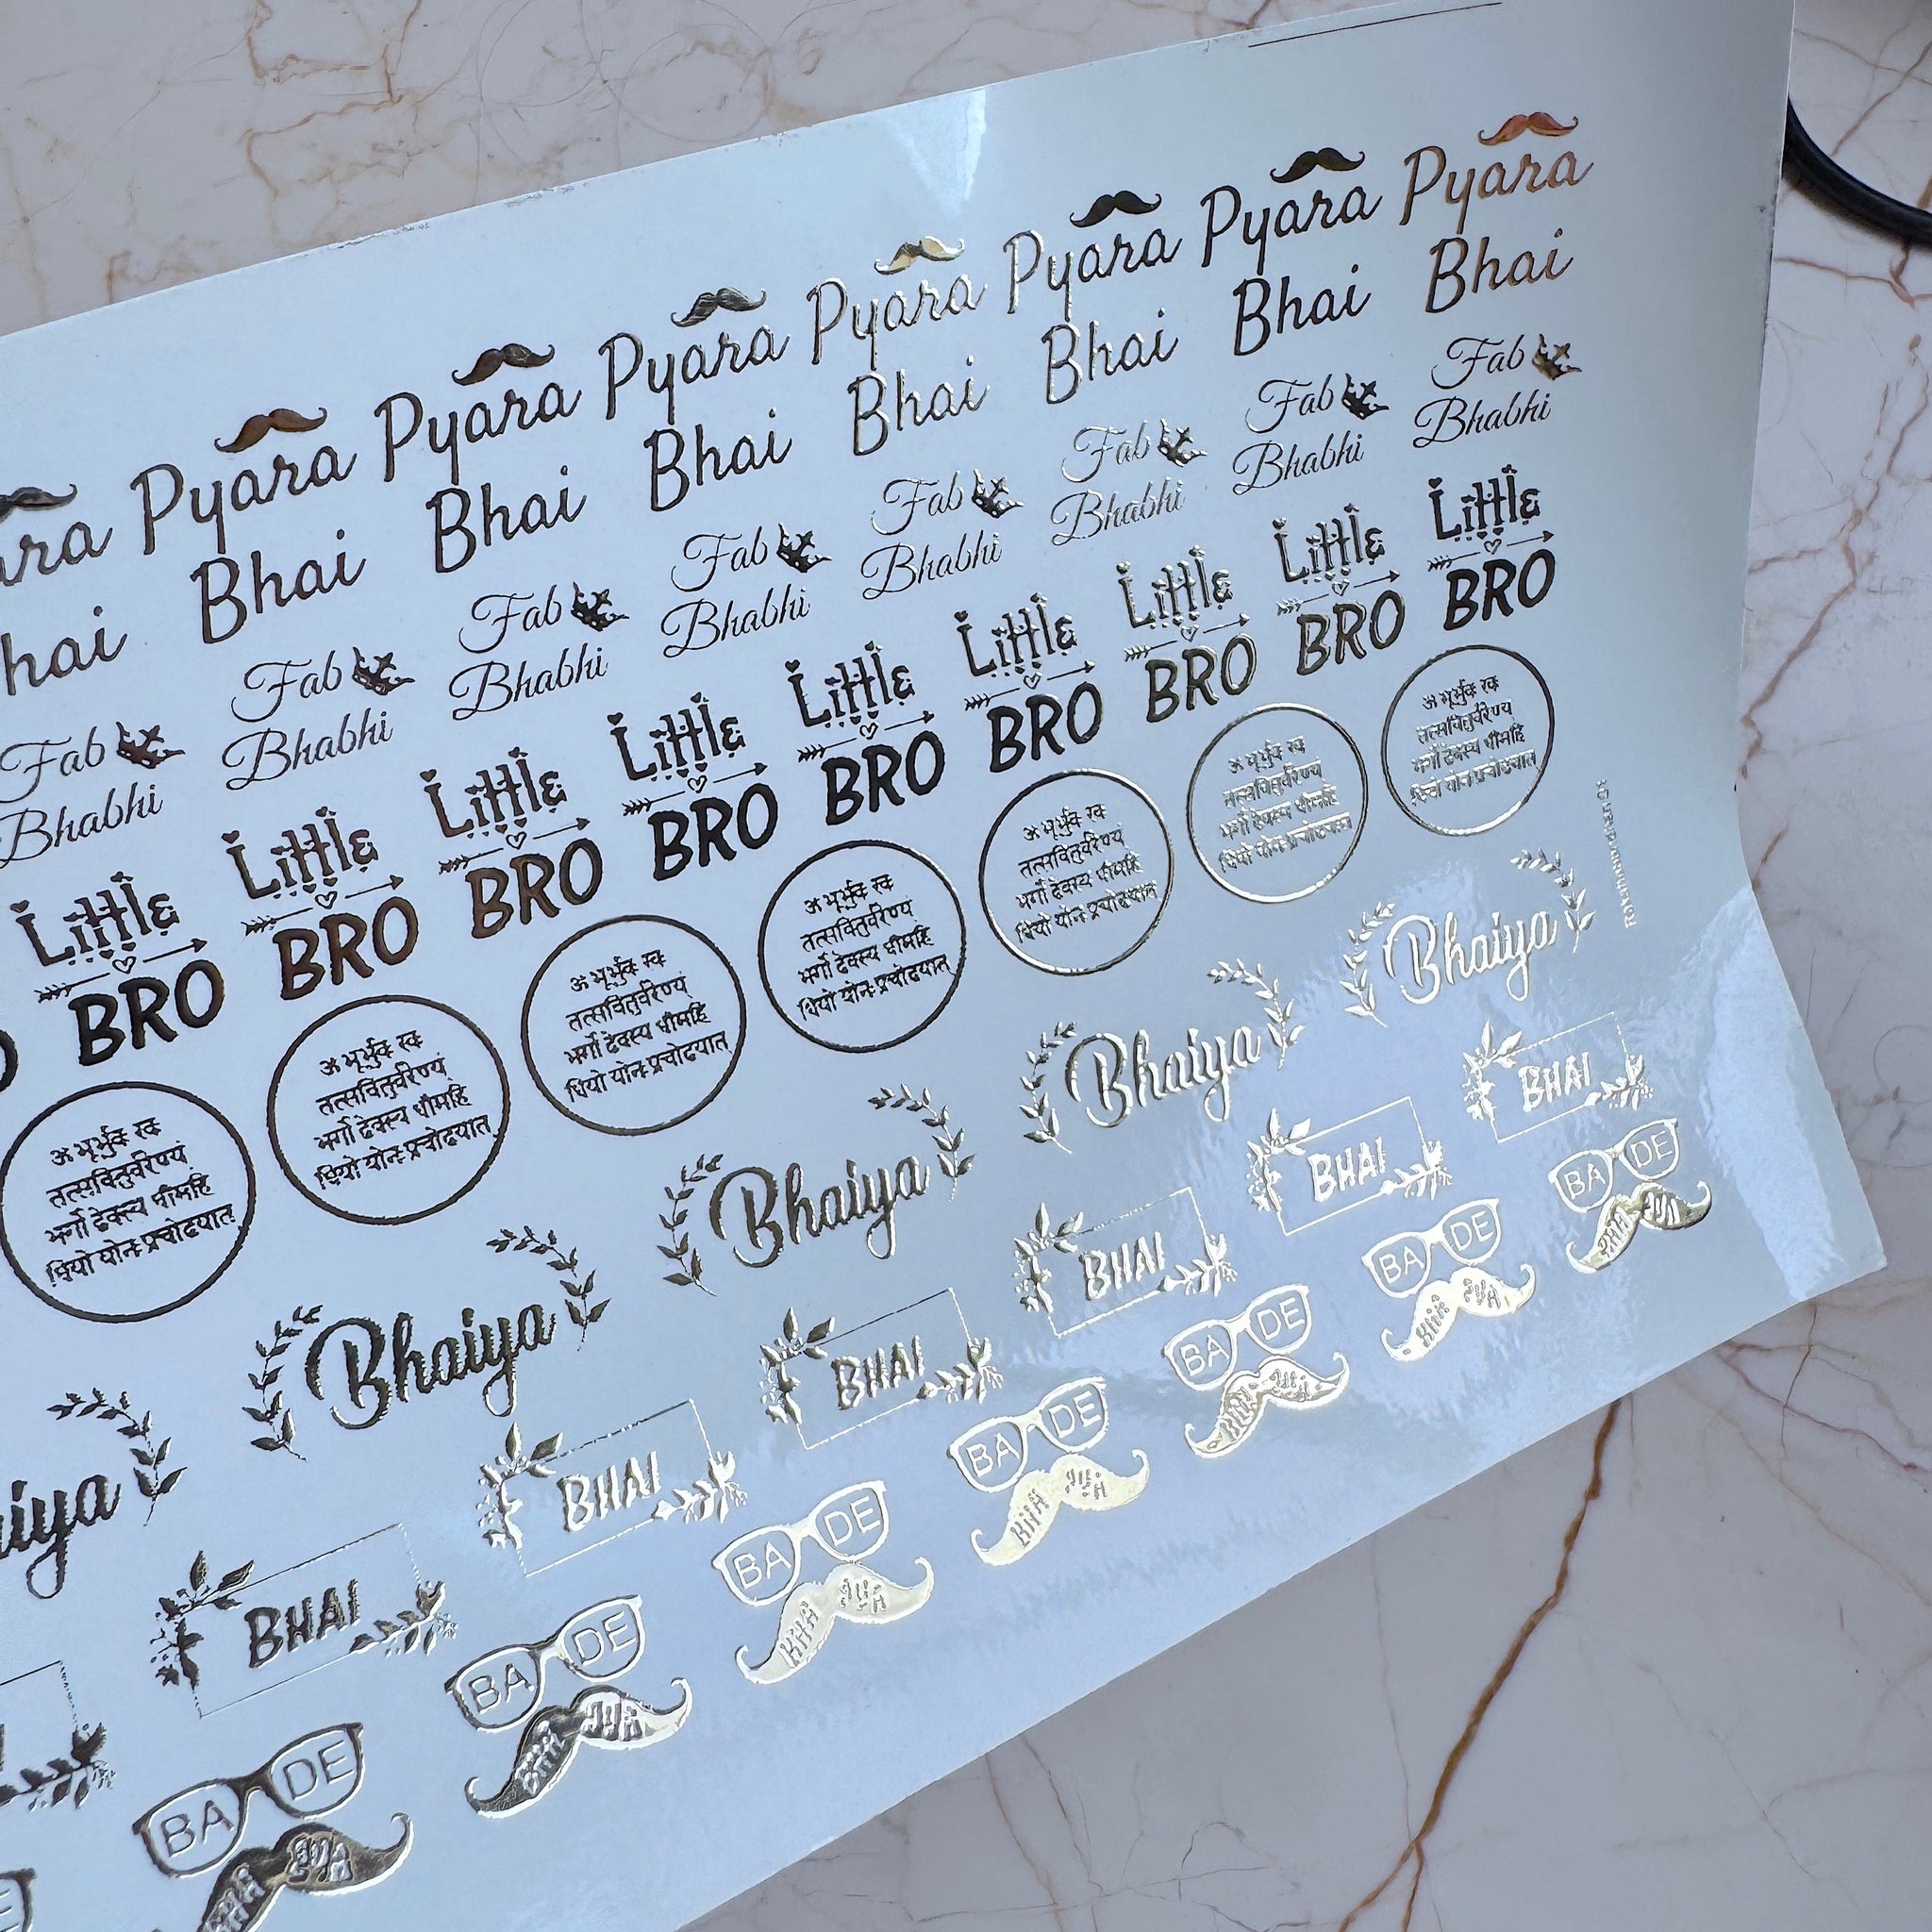 ara Pyara Pyara Pyara Pyara Pyara Pyara Pyara
hai Bhai Bhai Bhai Bhai Bhai Bhai Bhai
Fab Fab Fab Fab Fab Fab Fab Fab
Bhabhi Bhabhi Bhabhi Bhabhi Bhabhi Bhabhi Bhabhi Bhabhi
Little Little Little Little Little Little Little Little Little
BRO BRO BRO BRO BRO BRO BRO BRO BRO
ॐ भूर्भुवः स्वः ॐ भूर्भुवः स्वः ॐ भूर्भुवः स्वः ॐ भूर्भुवः स्वः ॐ भूर्भुवः स्वः ॐ भूर्भुवः स्वः ॐ भूर्भुवः स्वः
तत्सवितुर्वरेण्यं तत्सवितुर्वरेण्यं तत्सवितुर्वरेण्यं तत्सवितुर्वरेण्यं तत्सवितुर्वरेण्यं तत्सवितुर्वरेण्यं तत्सवितुर्वरेण्यं
भर्गो देवस्य धीमहि भर्गो देवस्य धीमहि भर्गो देवस्य धीमहि भर्गो देवस्य धीमहि भर्गो देवस्य धीमहि भर्गो देवस्य धीमहि भर्गो देवस्य धीमहि
धियो योनः प्रचोदयात् धियो योनः प्रचोदयात् धियो योनः प्रचोदयात् धियो योनः प्रचोदयात् धियो योनः प्रचोदयात् धियो योनः प्रचोदयात् धियो योनः प्रचोदयात्
iya Bhaiya Bhaiya Bhaiya Bhaiya
BHAI BHAI BHAI BHAI BHAI BHAI
BA DE BA DE BA DE BA DE BA DE BA DE BA DE